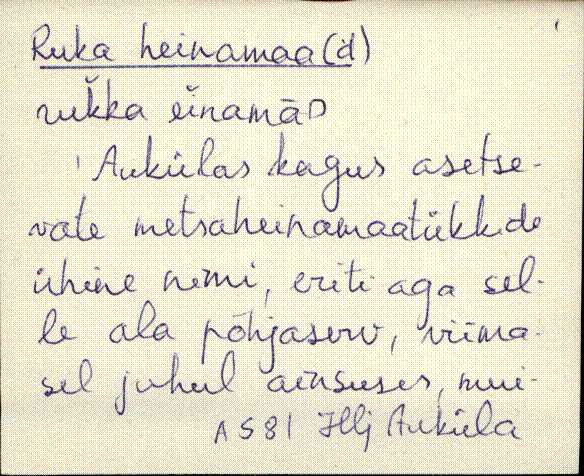 Ruka heinamaa(d)
rukka einamāD
Aukülas kagus asetse-
vate metsaheinamaatükkide
ühine nimi, eriti aga sel-
le ala põhjaserv, viima-
sel juhul ainsuses, mui-
AS81 Hlj Auküla